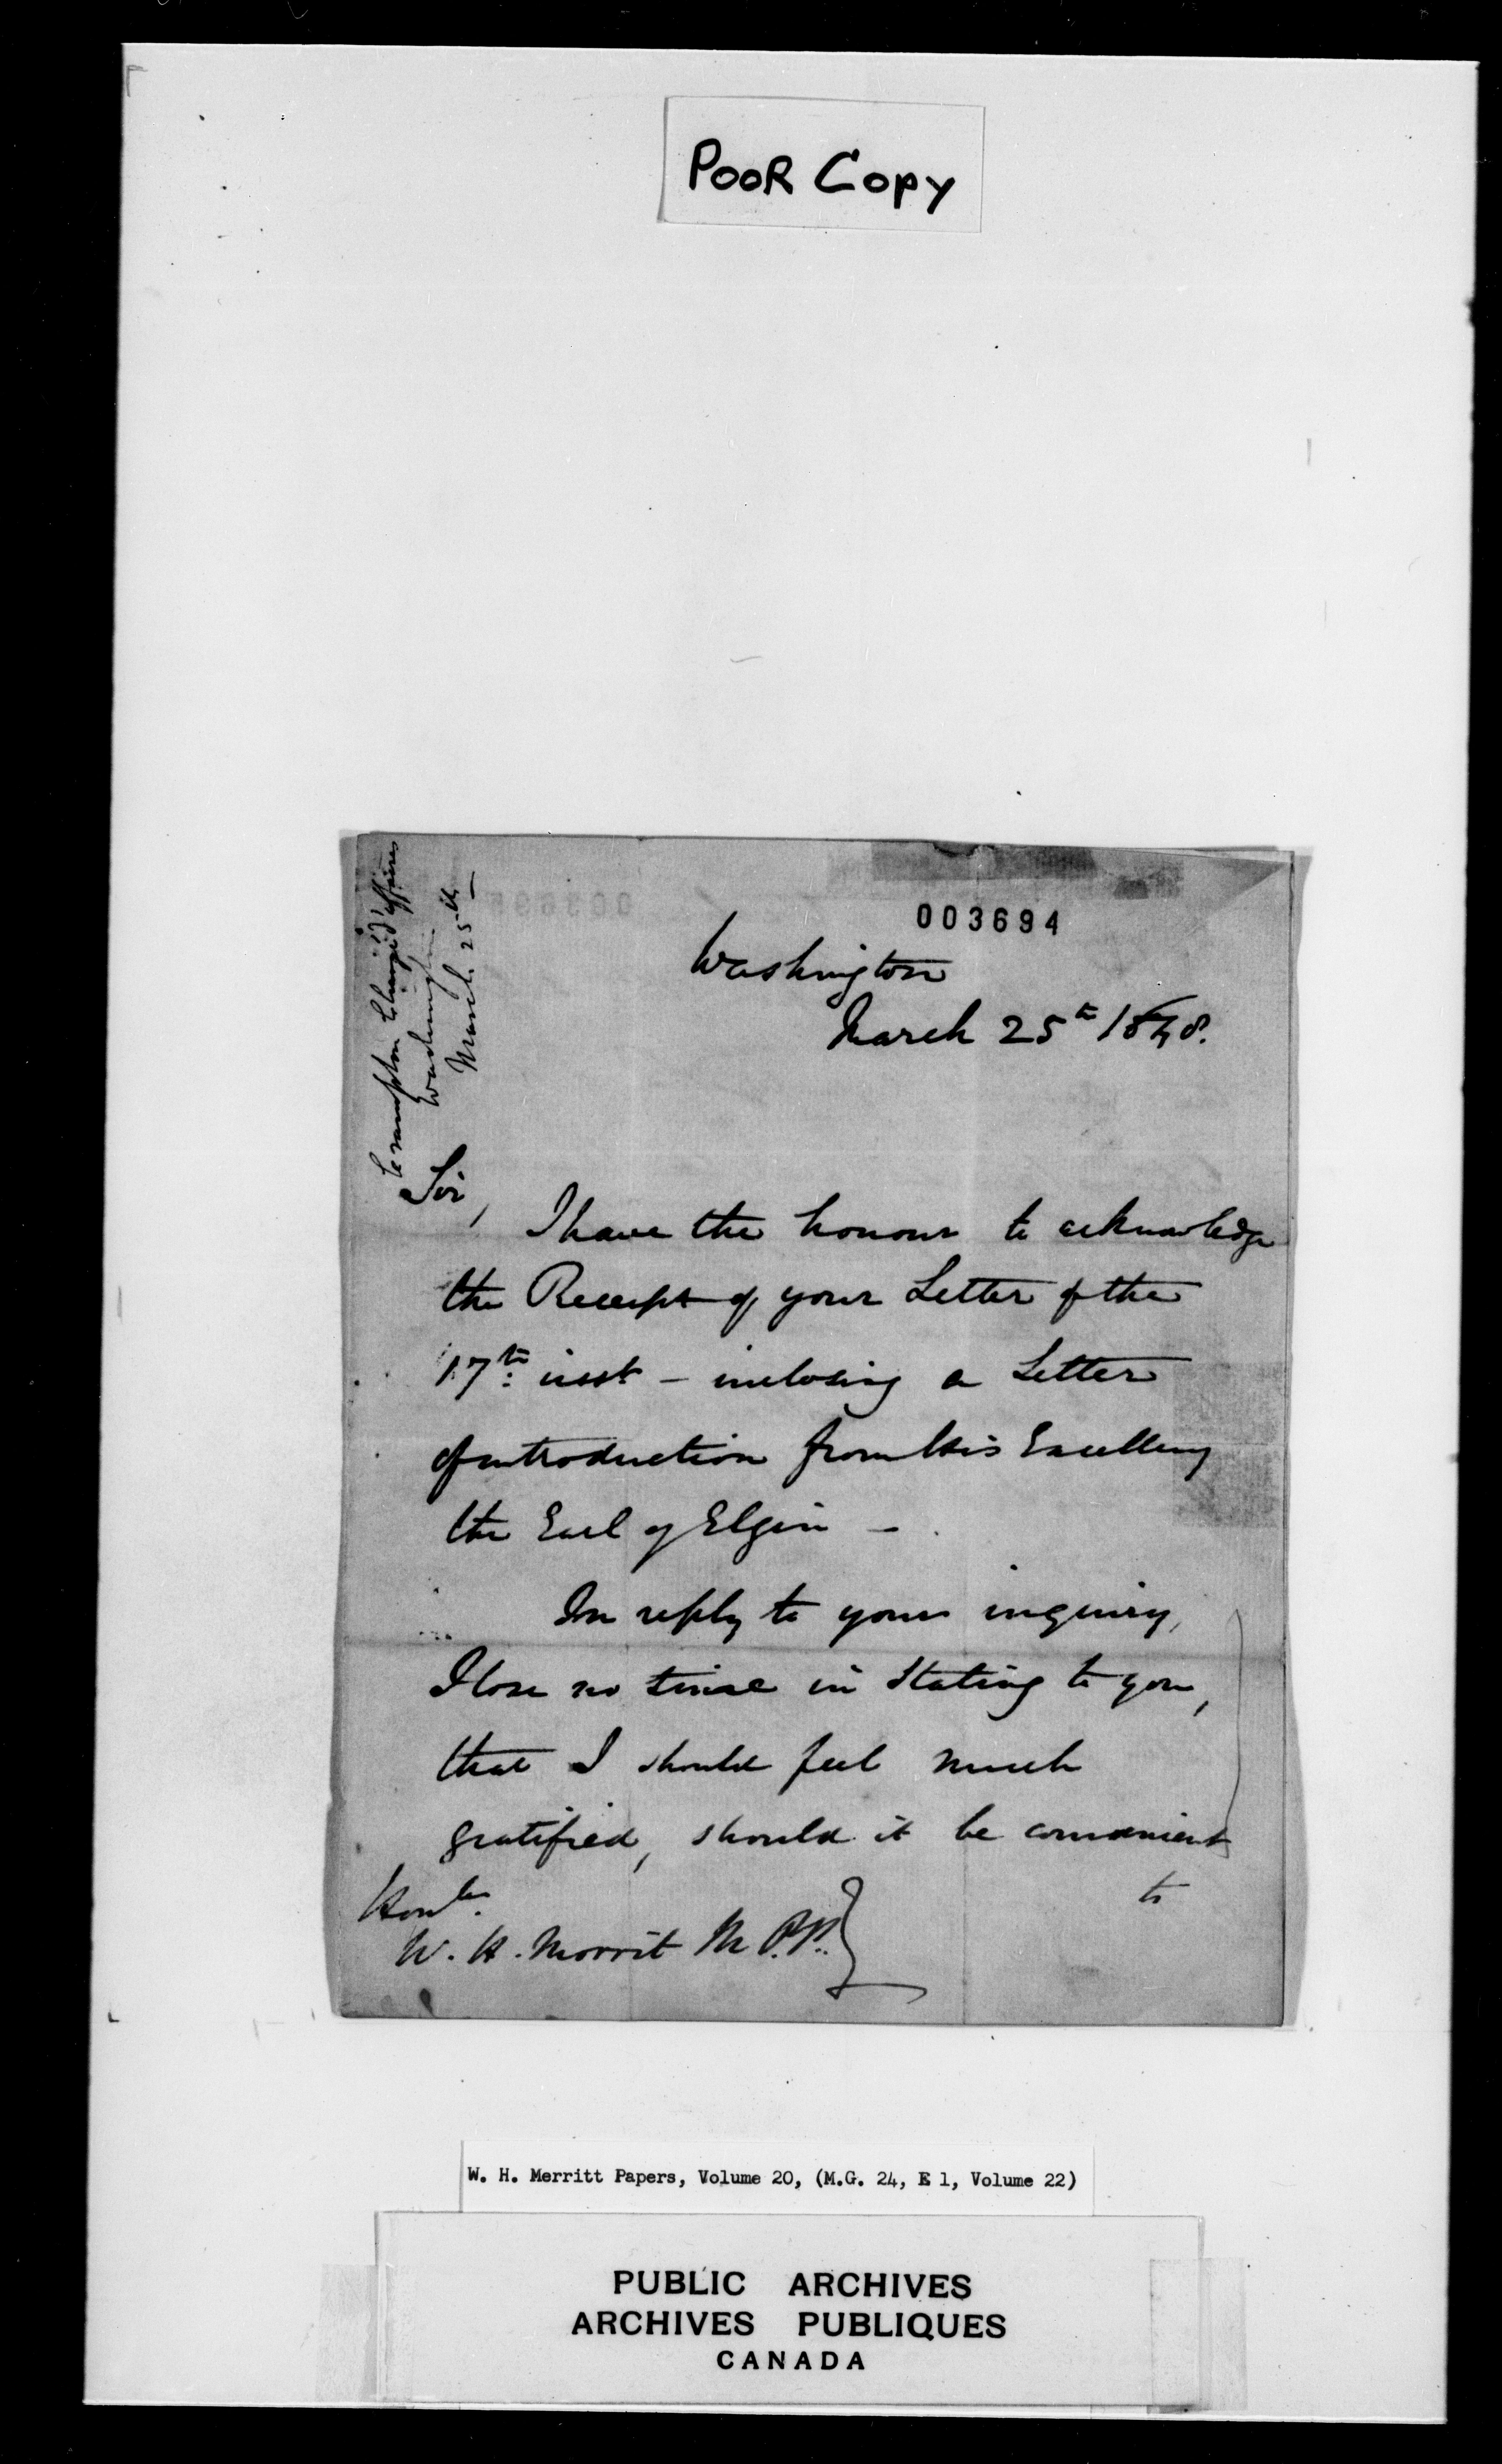 POOR COPY
003694
Crampton Chargé d'Affaires
Washington
March 25th —
Washington
March 25th 1848.
Sir,
I have the honour to acknowledge
the Receipt of your Letter of the
17th inst — inclosing a Letter
of introduction from His Excellency
the Earl of Elgin —
In reply to your inquiry,
I lose no time in stating to you,
that I should feel much
gratified, should it be convenient
to
Honble
W. H. Merrit M.P.P.
W. H. Merritt Papers, Volume 20, (M.G. 24, E 1, Volume 22)
PUBLIC ARCHIVES
ARCHIVES PUBLIQUES
CANADA